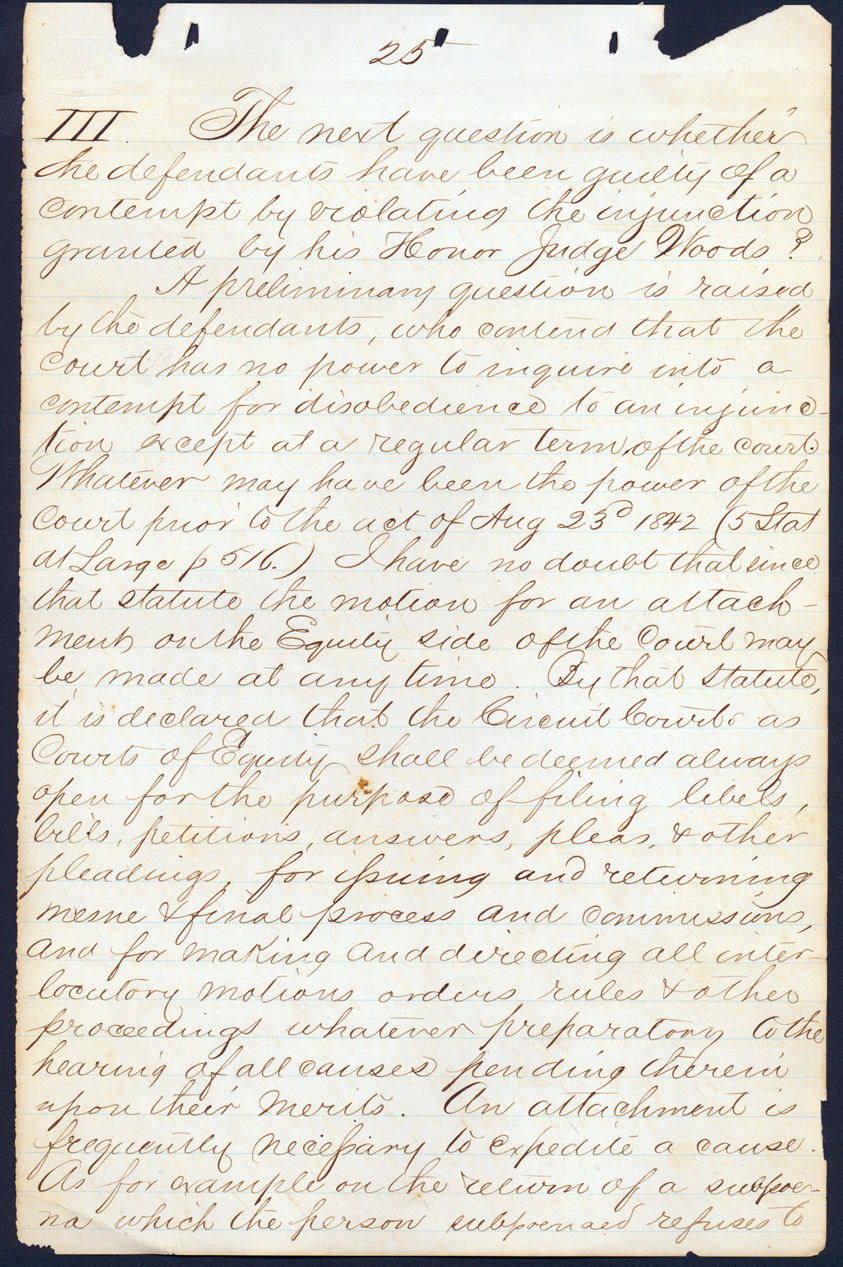 25
III. The next question is whether
the defendants have been guilty of a
contempt by violating the injunction
granted by his Honor Judge Woods?
A preliminary question is raised
by the defendants, who contend that the
court has no power to inquire into a
contempt for disobedience to an injunc-
tion except at a regular term of the court.
Whatever may have been the power of the
Court prior to the act of Aug 23d 1842 (5 Stat
at Large p 516.) I have no doubt that since
that statute the motion for an attach-
ment on the Equity side of the Court may
be made at any time. By that statute,
it is declared that the Circuit Courts as
Courts of Equity shall be deemed always
open for the purpose of filing libels,
bills, petitions, answers, pleas, & other
pleadings, for issuing and returning
mesne & final process and commissions,
and for making and directing all inter-
locutory motions orders rules & other
proceedings whatever preparatory to the
hearing of all causes pending therein
upon their merits. An attachment is
frequently necessary to expedite a cause.
As for example on the return of a subpoe-
na which the person subpoenaed refuses to